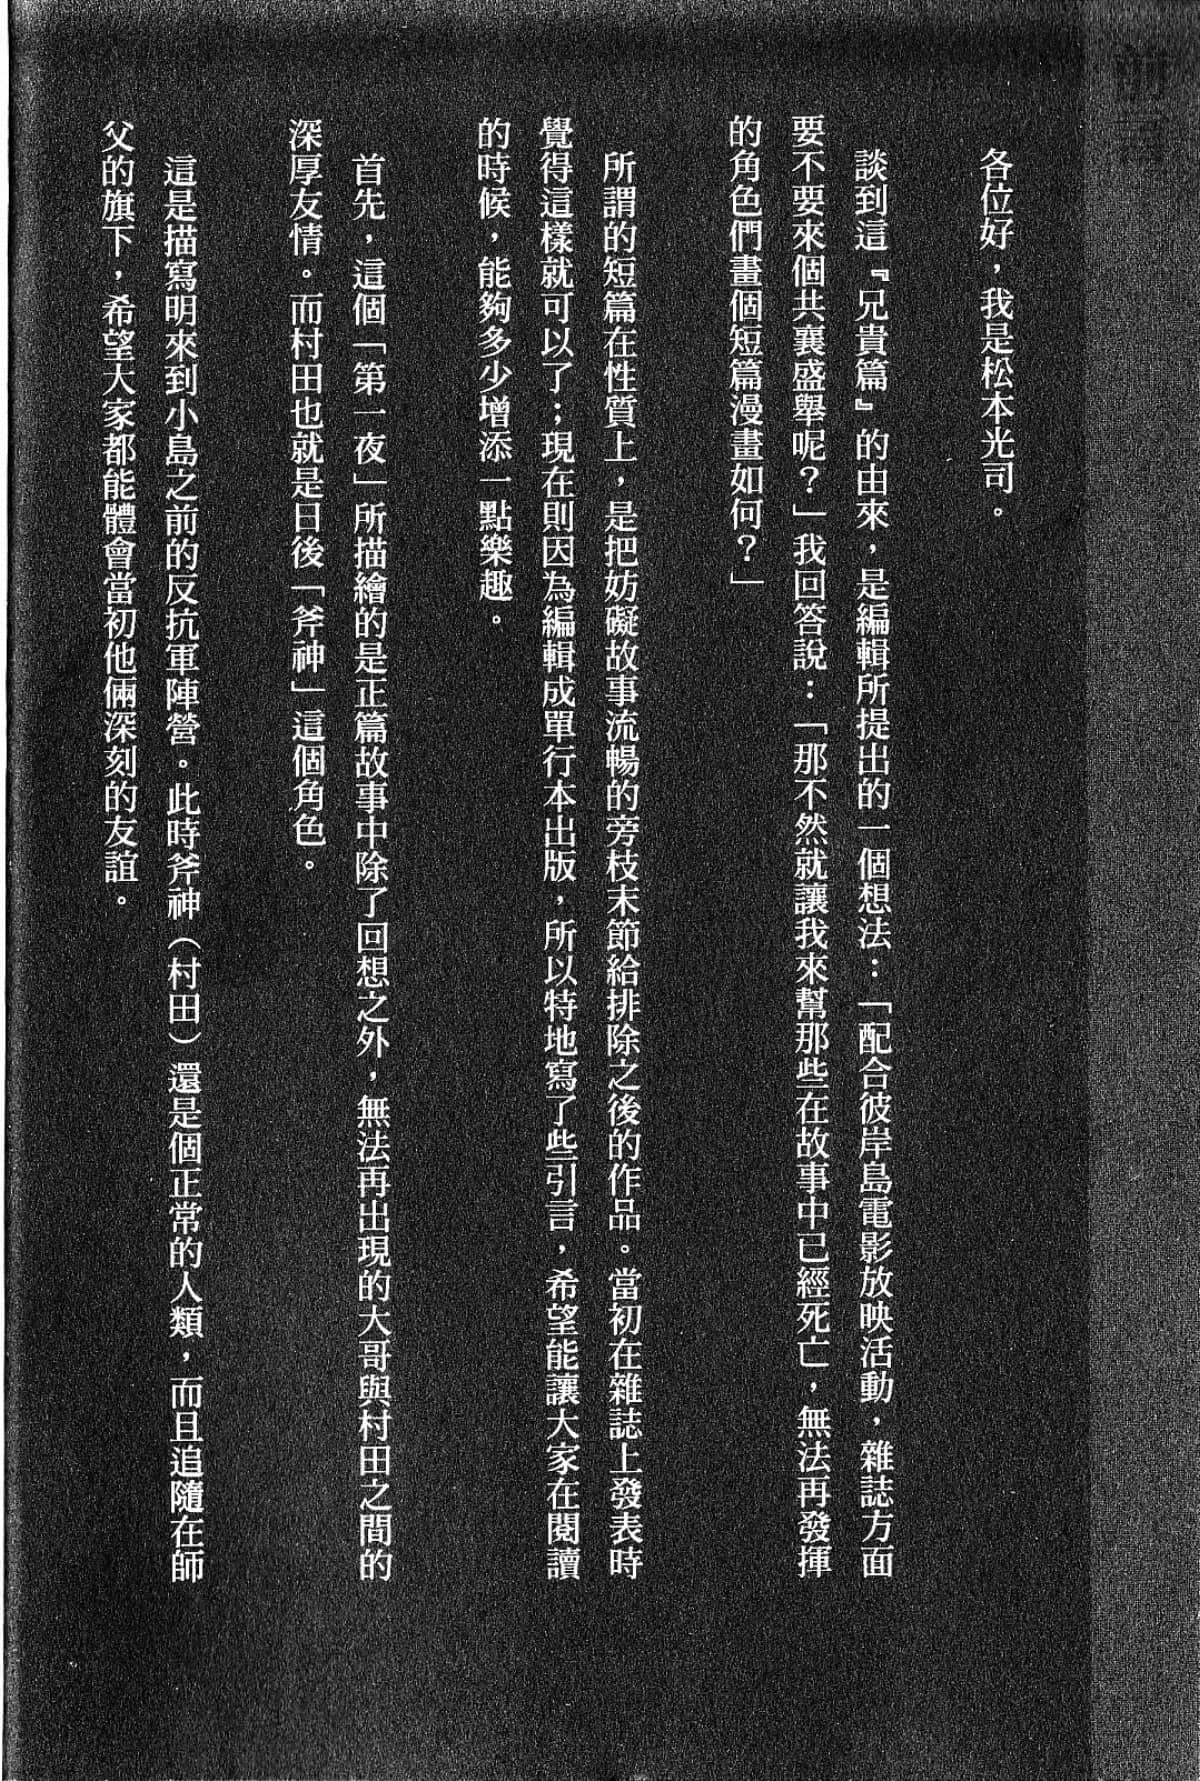 前言
各位好，我是松本光司。
談到這『兄貴篇』的由來，是編輯所提出的一個想法：「配合彼岸島電影放映活動，雜誌方面
要不要來個共襄盛舉呢？」我回答說：「那不然就讓我來幫那些在故事中已經死亡，無法再發揮
的角色們畫個短篇漫畫如何？」
所謂的短篇在性質上，是把妨礙故事流暢的旁枝末節給排除之後的作品。當初在雜誌上發表時
覺得這樣就可以了；現在則因為編輯成單行本出版，所以特地寫了些引言，希望能讓大家在閱讀
的時候，能夠多少增添一點樂趣。
首先，這個「第一夜」所描繪的是正篇故事中除了回想之外，無法再出現的大哥與村田之間的
深厚友情。而村田也就是日後「斧神」這個角色。
這是描寫明來到小島之前的反抗軍陣營。此時斧神（村田）還是個正常的人類，而且追隨在師
父的旗下，希望大家都能體會當初他倆深刻的友誼。